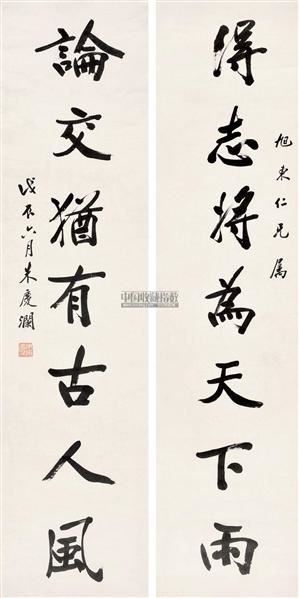 旭東仁兄属
得志將為天下雨
論交猶有古人風
戊辰六月朱慶瀾
中国收藏指数